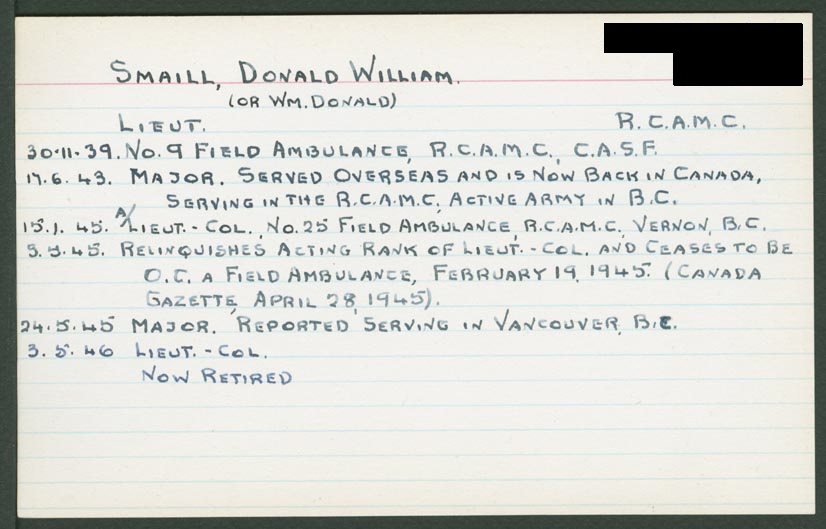 SMAILL, DONALD WILLIAM.
(OR WM. DONALD)
LIEUT. R.C.A.M.C.
30.11.39. NO. 9 FIELD AMBULANCE, R.C.A.M.C., C.A.S.F.
17.6.43. MAJOR. SERVED OVERSEAS AND IS NOW BACK IN CANADA,
SERVING IN THE R.C.A.M.C., ACTIVE ARMY IN B.C.
15.1.45. A/LIEUT.-COL., NO. 25 FIELD AMBULANCE, R.C.A.M.C., VERNON, B.C.
5.5.45. RELINQUISHES ACTING RANK OF LIEUT.-COL. AND CEASES TO BE
O.C. A FIELD AMBULANCE, FEBRUARY 19, 1945. (CANADA
GAZETTE, APRIL 28, 1945).
24.5.45 MAJOR. REPORTED SERVING IN VANCOUVER, B.C.
3.5.46 LIEUT.-COL.
NOW RETIRED